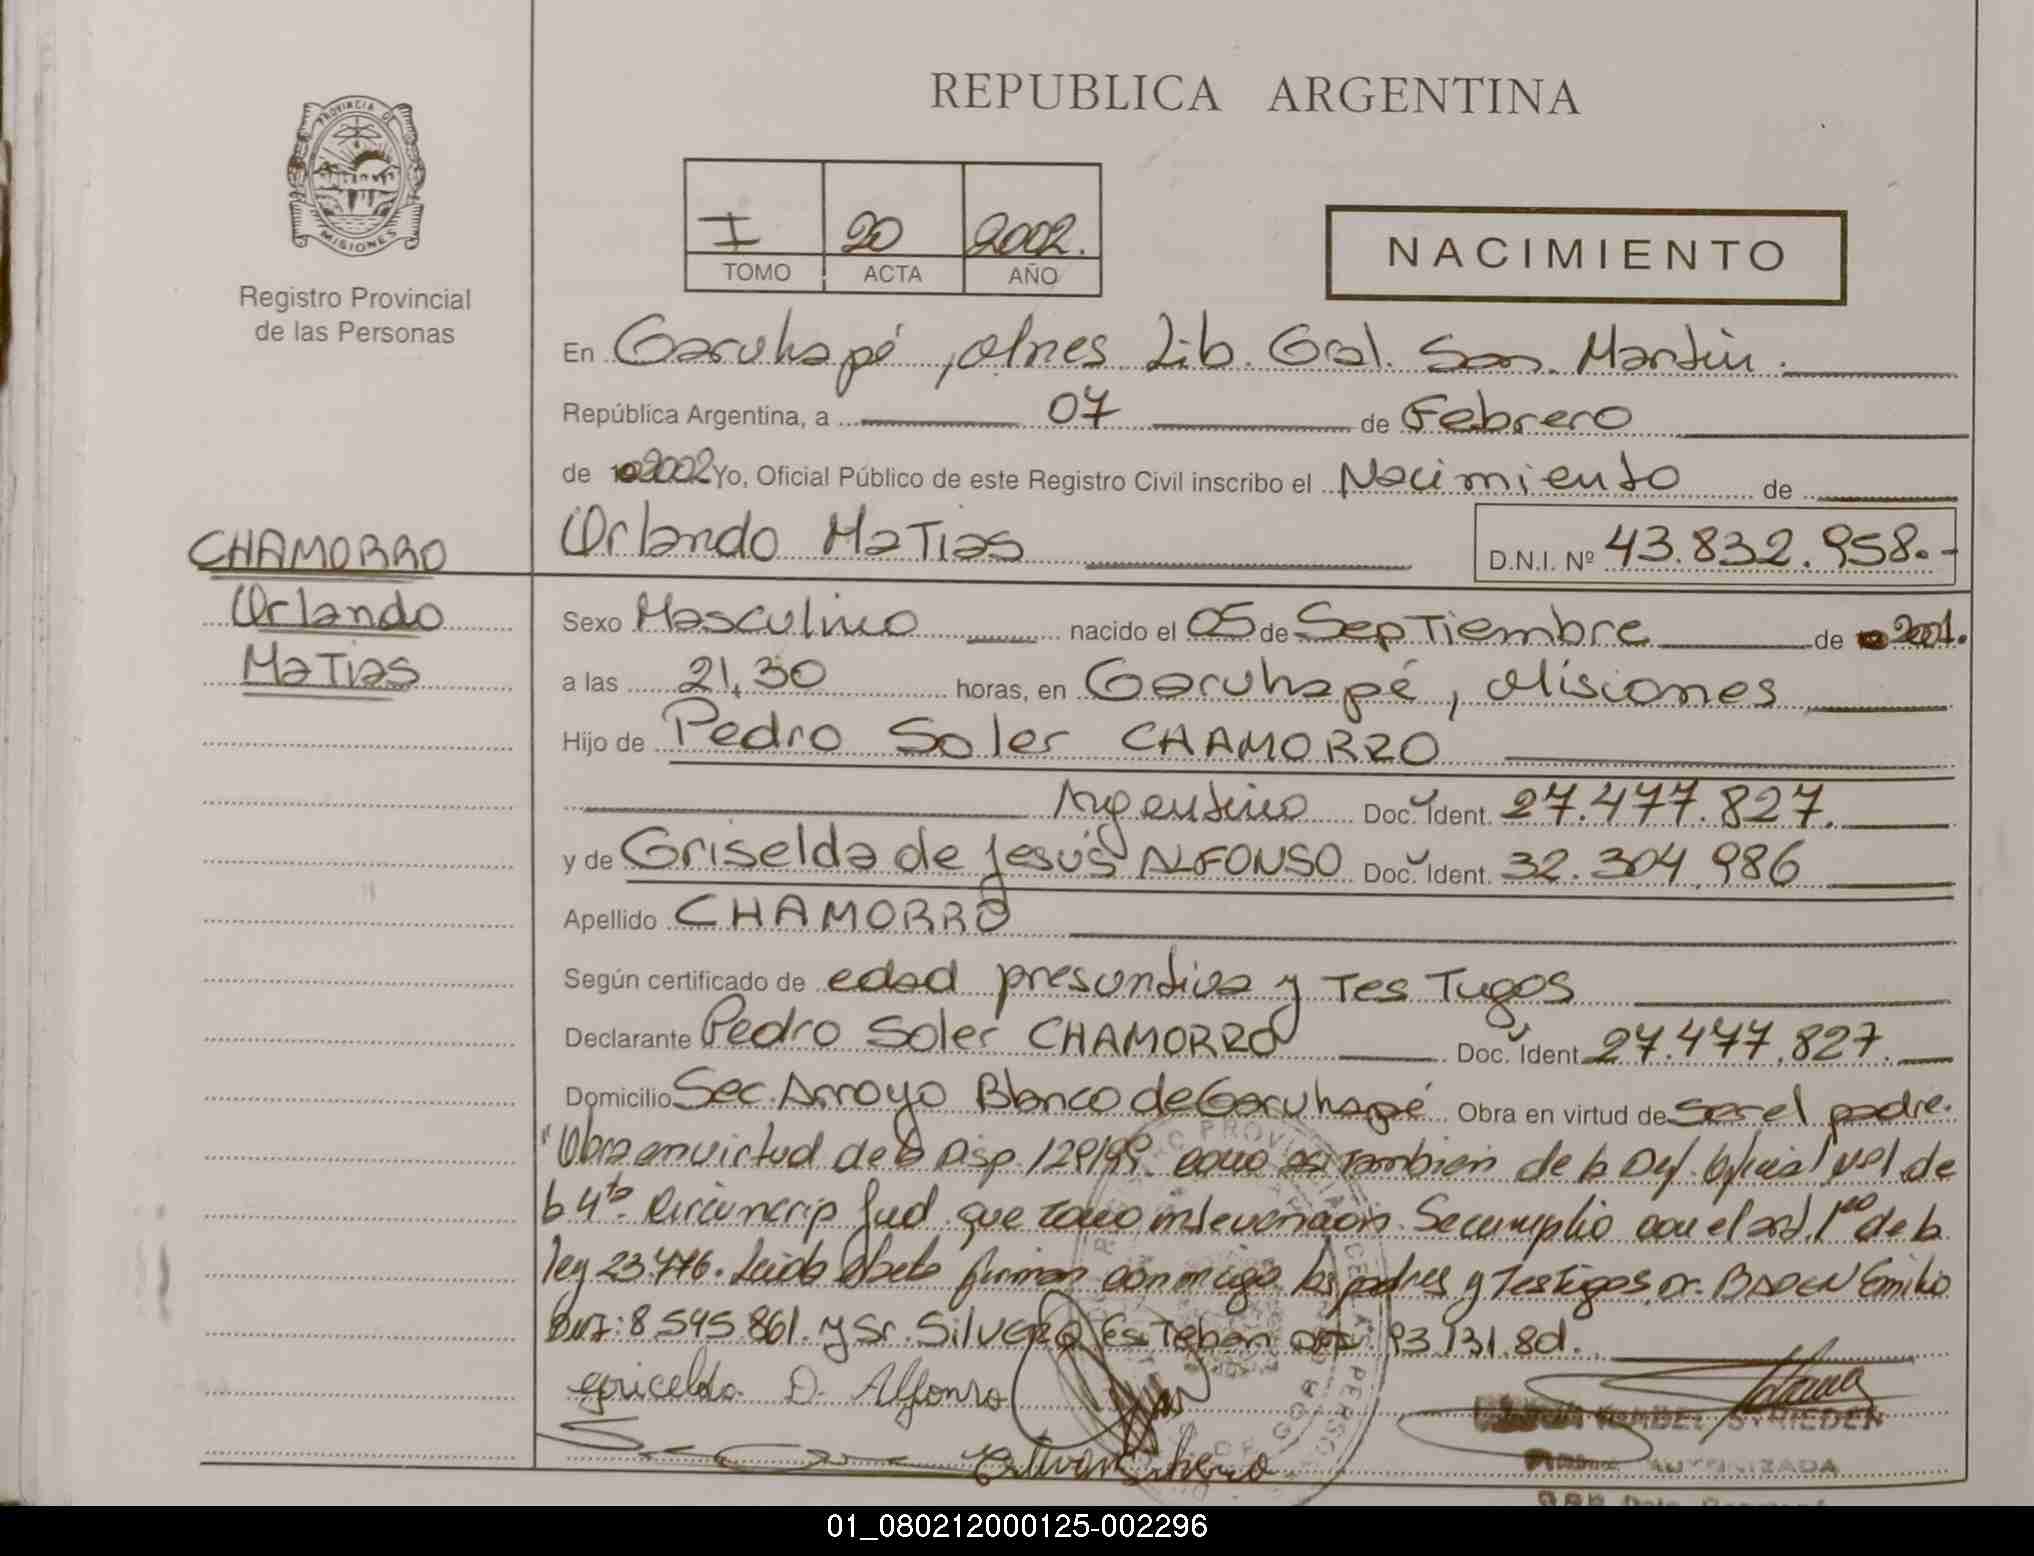 REPUBLICA ARGENTINA
PROVINCIA DE
MISIONES
Registro Provincial
de las Personas
I 20 2002.
TOMO ACTA AÑO
NACIMIENTO
En Garuhapé, Mnes Lib. Gral. San. Martín.
República Argentina, a 07 de Febrero
de 2002 Yo, Oficial Público de este Registro Civil inscribo el Nacimiento de
CHAMORRO
Orlando
Matias
Orlando Matias D.N.I. Nº 43.832.958.-
Sexo Masculino nacido el 05 de Septiembre de 2001.
a las 21,30 horas, en Garuhapé, Misiones
Hijo de Pedro Soler CHAMORRO
Argentino Doc. Ident. 27.477.827.
y de Griselda de Jesús ALFONSO Doc. Ident. 32.304.986
Apellido CHAMORRO
Según certificado de edad presuntiva y Testugos
Declarante Pedro Soler CHAMORRO Doc. Ident. 27.477.827.
Domicilio Sec. Arroyo Blanco de Garuhapé Obra en virtud de ser el padre.
"Obra en virtud de la Disp. 129/99. como asi tambien de la Def. Oficial Nº1 de
la 4ta. Circuncrip Jud. que tomo intervencion. Se cumplio con el art. 1ro de la
ley 23.776. Leida el acta firman conmigo los padres y Testigos, Dr. BADEN Emilio
DNI: 8.545.861. y Sr. SILVERO Esteban 93.131.8
Gricelda D. Alfonso
Esteban Silvero
AUTORIZADA
01_080212000125-002296